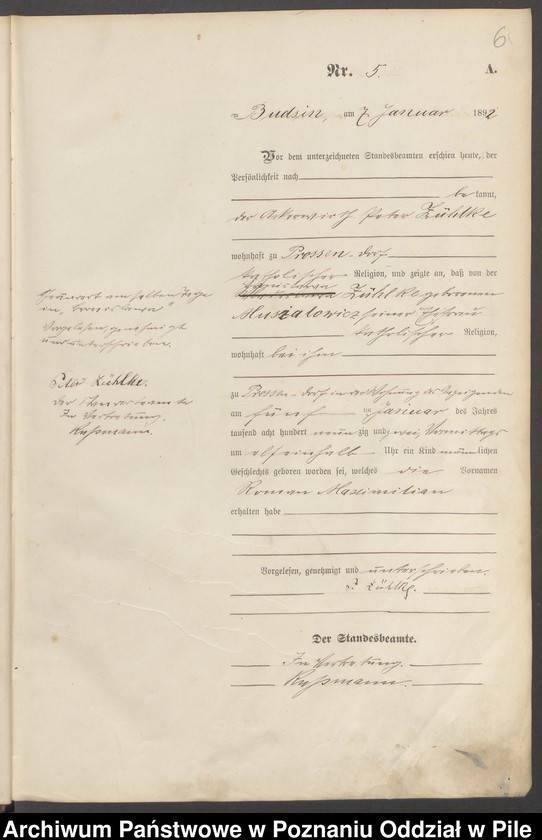 6
Nr. 5.
A.
Budsin, am 7 Januar 1892
Vor dem unterzeichneten Standesbeamten erschien heute, der
Persönlichkeit nach
bekannt,
der Ackerwirth Peter Zühlke
wohnhaft zu Prossen-dorf
katholischer Religion, und zeigte an, daß von der
Zühlke geborenen
Musialowicz seiner Ehefrau
katholischer Religion,
wohnhaft bei ihm
zu Prossen-dorf in der Wohnung des Anzeigenden
am fünf ten Januar des Jahres
tausend acht hundert neunzig und zwei, Vormittags
um elf einhalb Uhr ein Kind männlichen
Geschlechts geboren worden sei, welches die Vornamen
Roman Maximilian
erhalten habe
Vorgelesen, genehmigt und unterschrieben.
P. Zühlke.
Der Standesbeamte.
In Vertretung.
am selben Tage
Vorgelesen, genehmigt
und unterschrieben.
Peter Zühlke.
Der Standesbeamte
In Vertretung.
Archiwum Państwowe w Poznaniu Oddział w Pile